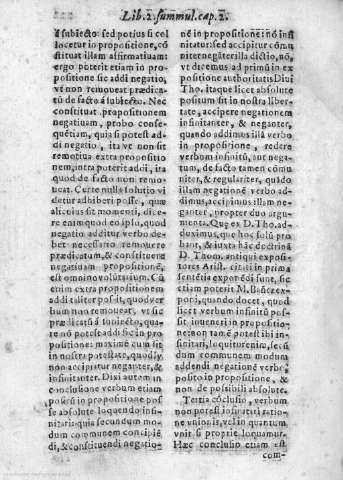 Lib. 2. summul. cap. 2.
à subiecto: sed potius si col
locetur in propositione, cõ
stituat illam affirmatiuam:
ergo poterit etiam in pro-
positione sic addi negatio,
vt non remoueat prædica-
tũ de facto à subiecto. Nec
constituat propositionem
negatiuam, probo conse-
quẽtiam, quia si potest ad-
di negatio, ita vt non sit
remotiua extra propositio
nem, intra poterit addi, ita
quod de facto non remo-
ueat. Cur te nulla solutio vi
detur adhiberi posse, quæ
alicuius sit momenti, dice-
re enim quod eo ipso, quod
negatio additur verbo de-
bet necessario remouere
prædicatum, & constituere
negatiuam propositionẽ,
est omnino voluntarium. Cũ
enim extra propositionem
addi taliter possit, quod ver
bum non remoueat, vt sic
prædicatũ à subiecto, qua-
re nõ potest addi sic in pro
positione: maxime cum sit
in nostra potestate, quod ly
non accipiatur neganter, &
infinitanter. Dixi autem in
conclusione verbum etiam
posse si in propositione pos
se absolute loquendo infi-
nitari: quia secundum mo-
dum communem concipiẽ
di, & constituendi negatio-
nẽ in propositione nõ infi
nitatur: sed accipitur cõmu
niter negatẽr illa dictio, nõ,
vt dicemus ad primũ in ex
positione authoritatis Diui
Tho. itaque licet absolute
positum sit in nostra liber-
tate, accipere negationem
infinitanter, & neganter,
quando addimus illã verbo
in propositione, redere
verbum infinitũ, aut nega-
tum, de facto tamen cõmu
niter, & regulariter, quãdo
illam negationẽ verbo ad-
dimus, accipimus illam ne-
ganter, propter duo argu-
menta. Quę ex D. Tho. ad-
duximus, quæ hoc solũ pro
bant, & iuxta hãc doctrinã
D. Thom. antiqui exposi-
tores Arist. citati in prima
sententia exponẽdi sunt, sic
etiam poterit M. Bañez ex-
poni, quando docet, quod
licet verbum infinitũ pos-
sit inueniri in propositio-
ne: non tamẽ potest ibi infi
nitari, loquitur enim secũ
dum communem modum
addendi negationẽ verbo,
posito in propositione, &
non de possibili absolute.
Tertia cõclusio, verbum
non potest infinitari ratio-
ne vnionis, vel in quantum
vnit si proprie loquamur.
Hæc conclusio etiam est
com-